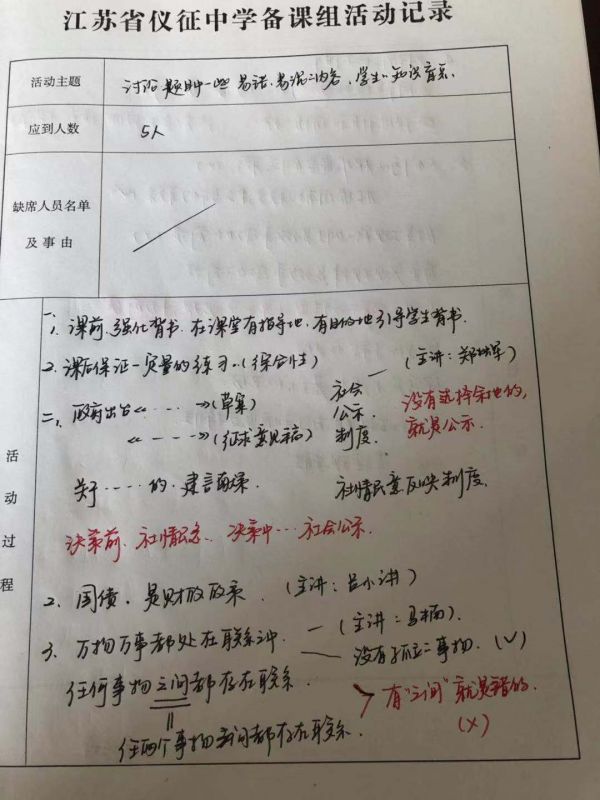 江苏省仪征中学备课组活动记录
活动主题
讨论题肢中一些易错、易混的内容、学生的知识盲点.
应到人数
5人
缺席人员名单
及事由
活动过程
一、
1. 课前、强化背书. 在课堂有指导地、有目的地引导学生背书.
2. 课后保证一定量的练习.(综合性) — (主讲:郑
二、1. 政府出台《……》(草案) 社会公示制度. 没有选择余地的,就是公示.
《……》(征求意见稿)
关于……的建言 社情民意反映制度.
决策前、社情民意、决策中…社会公示.
2. 国债. 是财政政策. (主讲:吕小
3. 万物万事都处在联系之中. — (主讲:马
— 没有孤立的事物. (√)
任何事物之间都存在联系. > 有“之间”就是错的. (×)
任两个事物之间都存在联系.